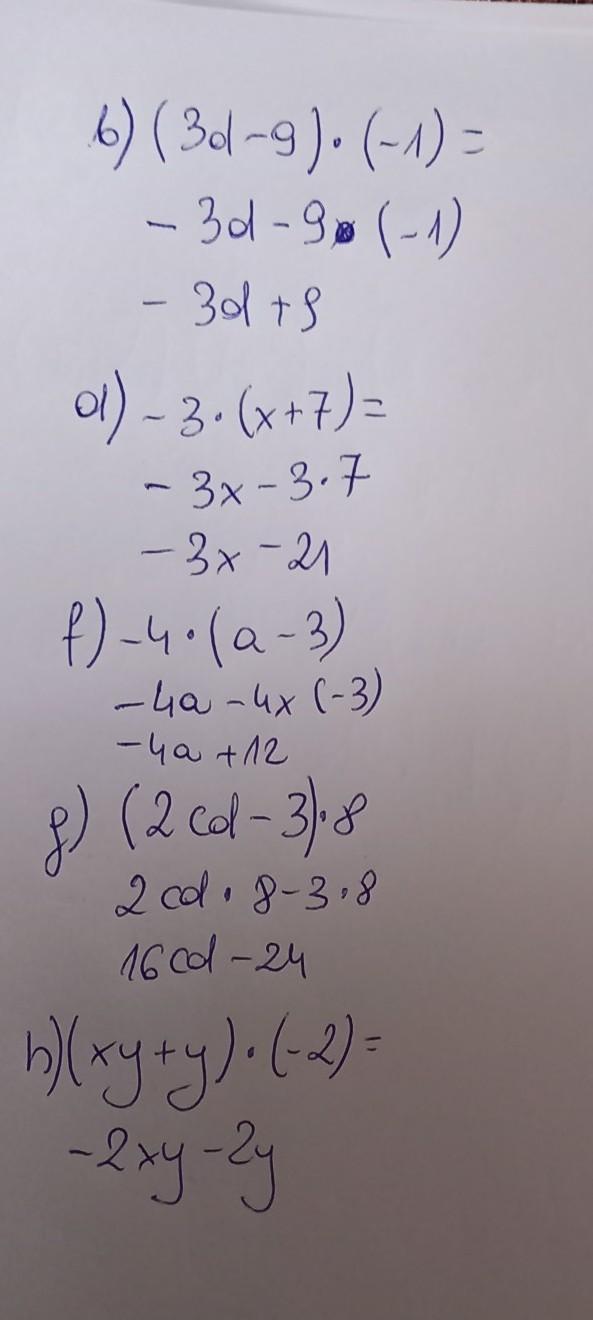 b) (3d-9)·(-1)=
- 3d - 9· (-1)
- 3d + 9
d) - 3·(x+7)=
- 3x - 3·7
- 3x - 21
f) -4·(a-3)
-4a -4x (-3)
-4a +12
g) (2cd-3)·8
2cd·8-3·8
16cd -24
h) (xy+y)·(-2)=
-2xy -2y